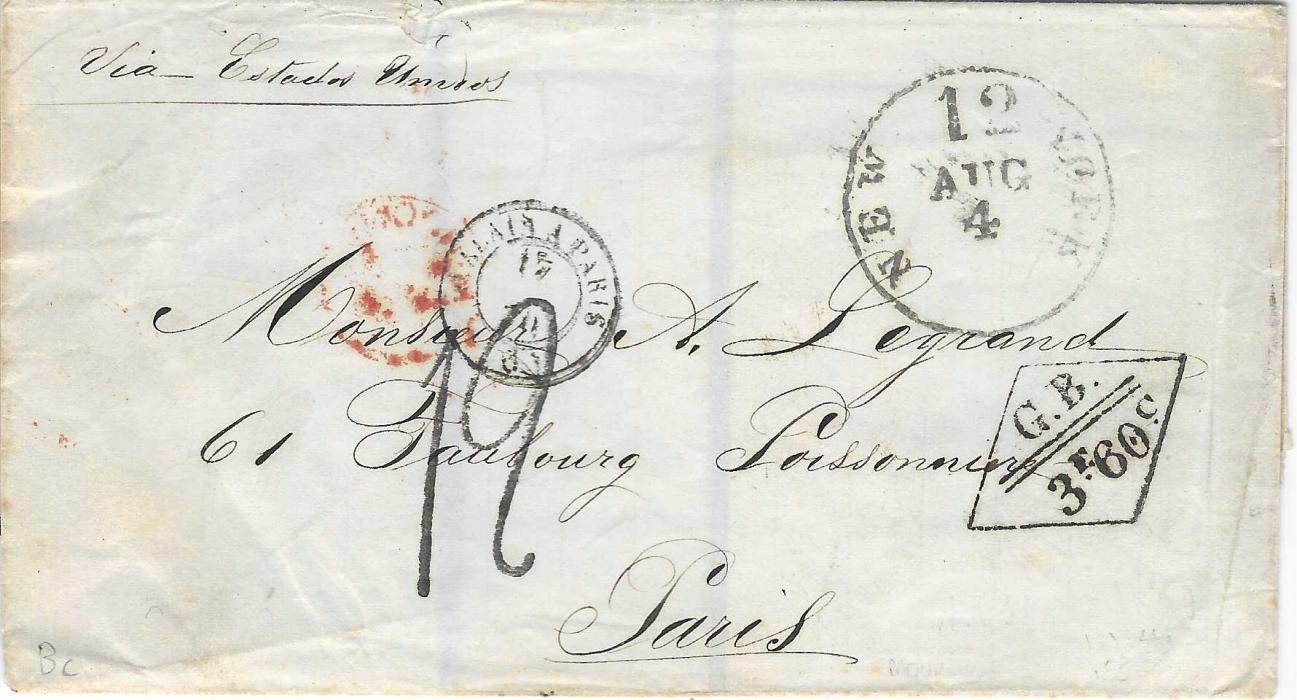 Via Estados Unidos
NEW YORK
12
AUG
4
CALAIS A PARIS
17
Monsieur A. Legrand
G.B.
3F.60c.
61 Faubourg Poissonniere
12
Paris
Bc